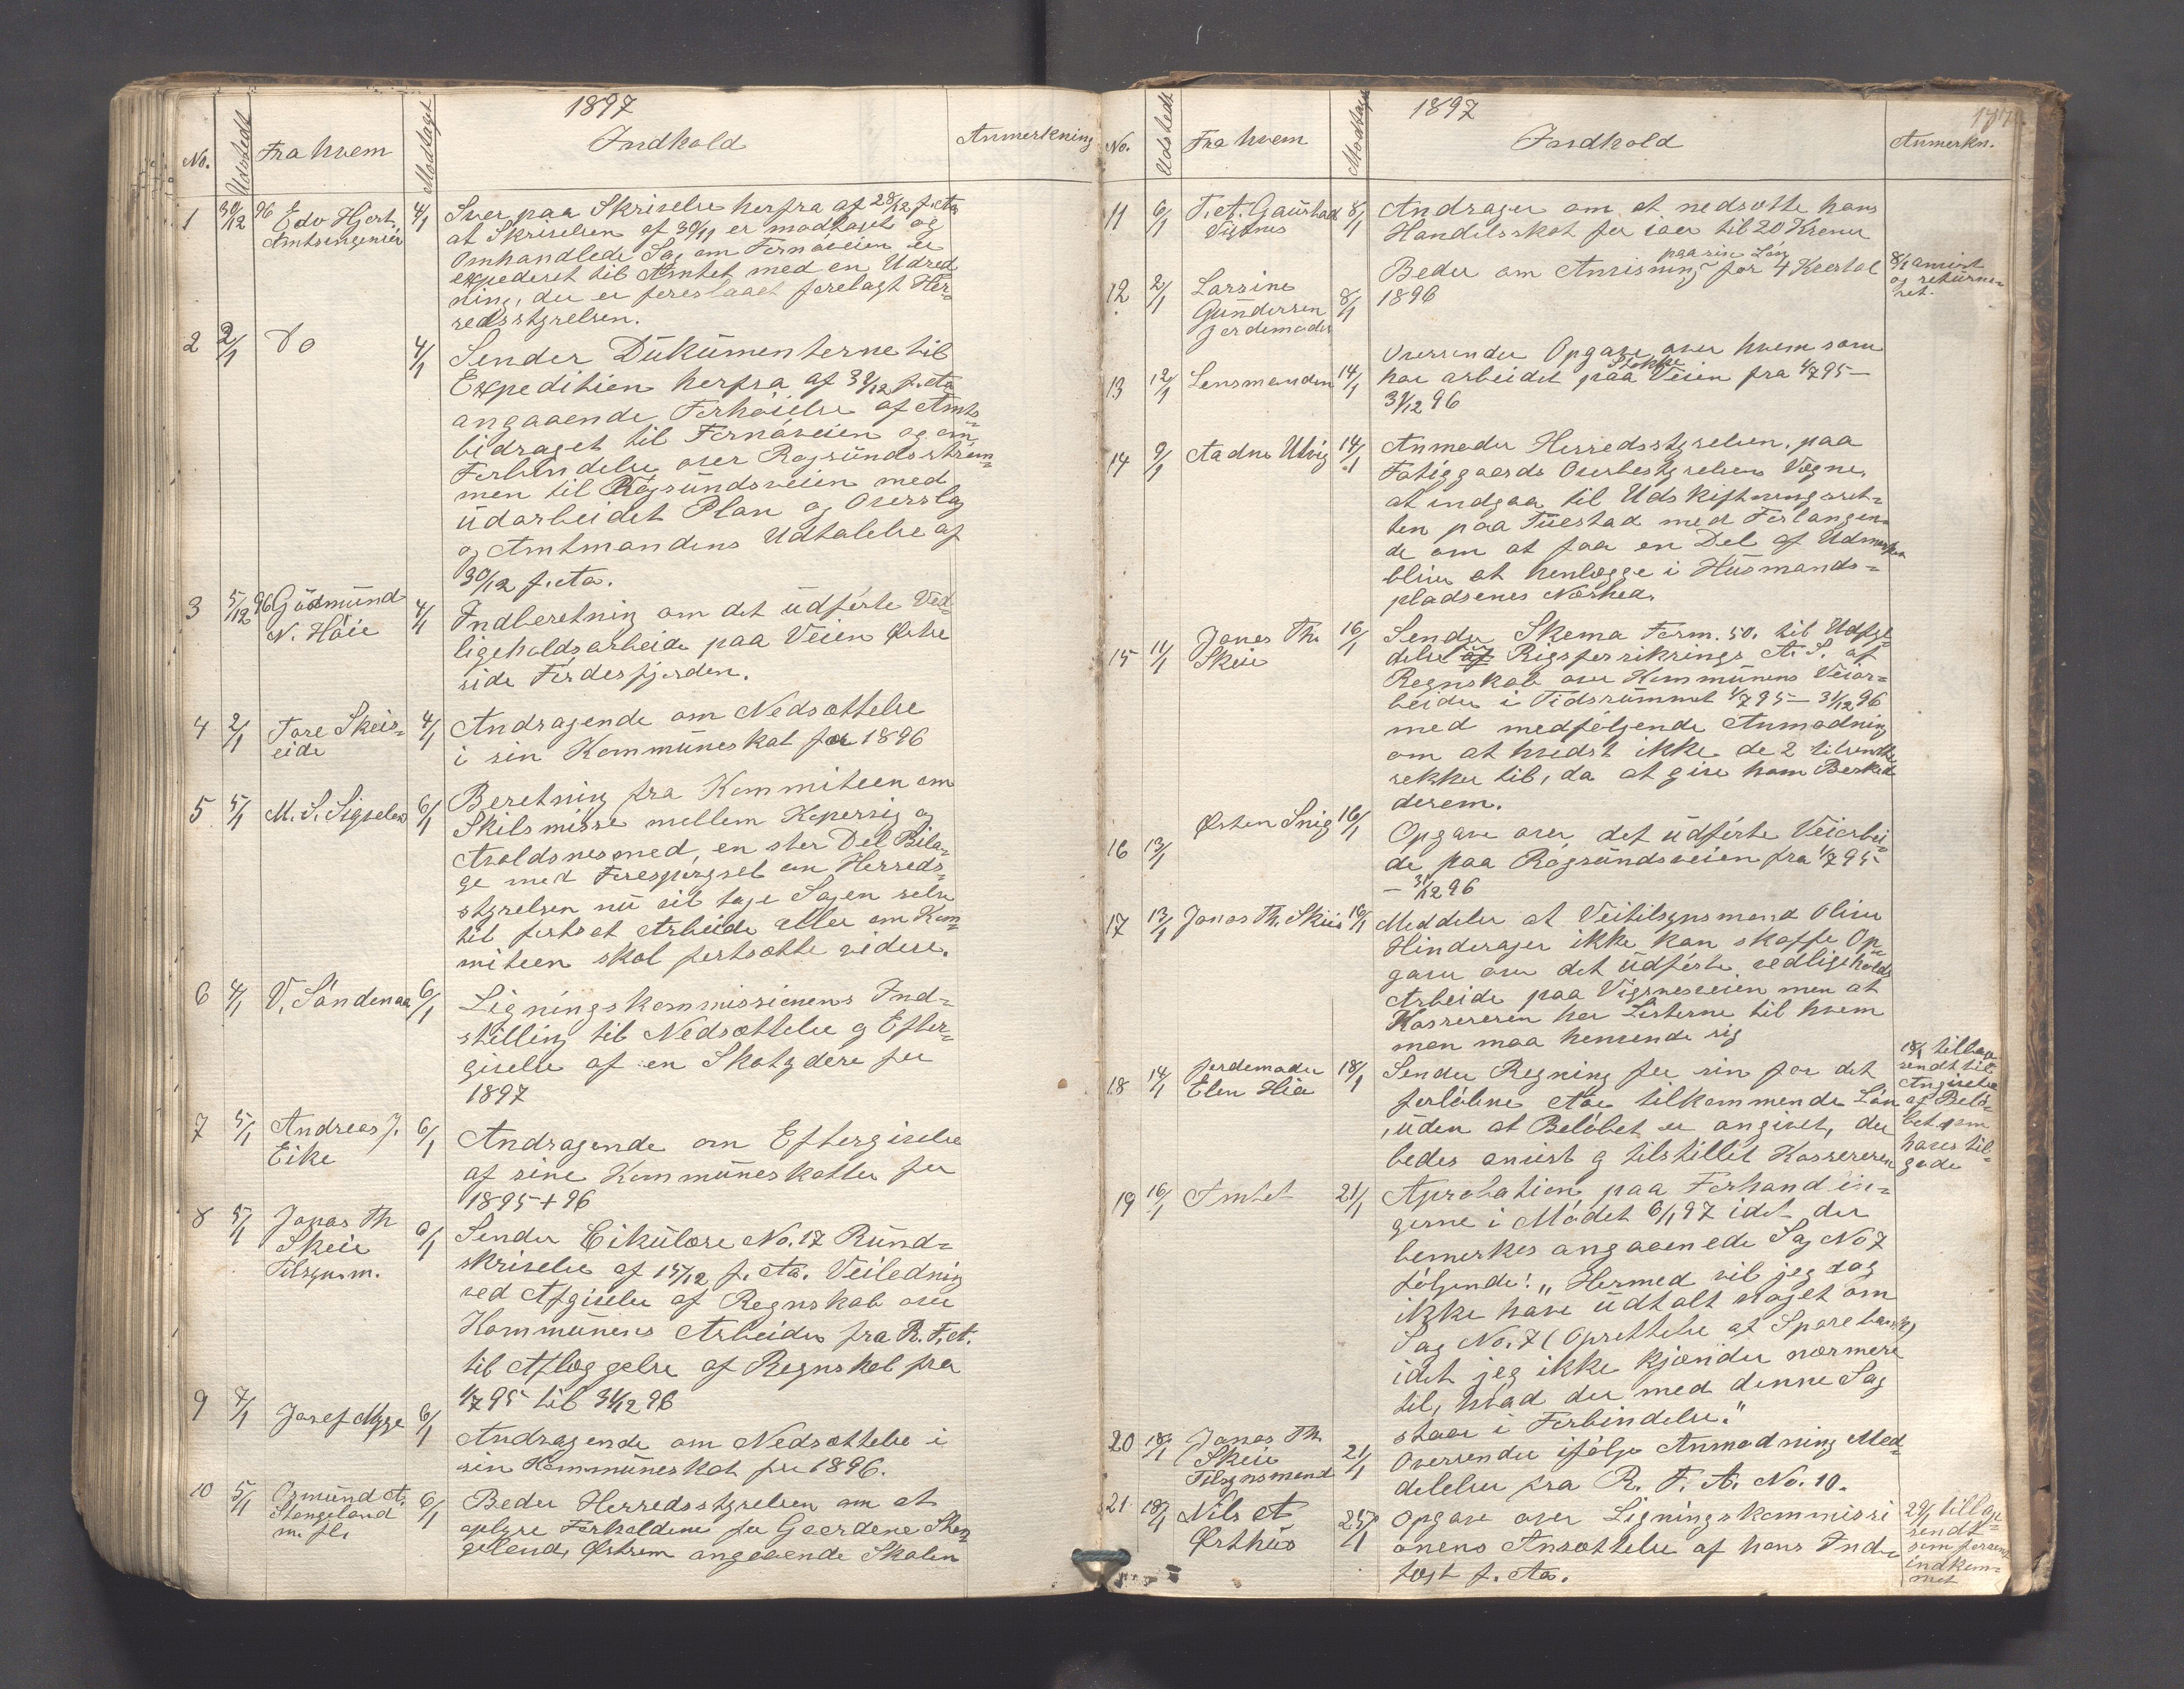 1897
No. Udstedt Fra hvem Modtaget Indhold Anmerkning
1 30/12 96 Edv Hjort, Amtsingeniør 4/1 Svar paa Skrivelse herfra af 28/12 f. Aa.
at Skrivelsen af 30/11 er modtaget og
Omhandlede Sag om Fornøveien er
expederet til Amtet med en Udred
ning, der er foreslaaet forelagt Her-
redsstyrelsen.
2 2/1 Do 4/1 Sender Dokumenterne til
Expedition herfra af 31/12 f. Aa
angaaende Forhöielse af Amts-
bidraget til Fornøveien og om
Forbindelse over Røgsundsstrøm-
men til Røgsundsveien med
udarbeidet Plan og Overslag
og Amtmandens Udtalelse af
30/12 f. Aa.
3 5/12 96 Gudmund
N. Höie 4/1 Indberetning om det udførte Ved-
ligeholdsarbeide paa Veien Østre
side Førdesfjorden.
4 2/1 Tore Skeis-
eide 4/1 Andragende om Nedsættelse
i sin Kommuneskat for 1896
5 5/1 M. S. 6/1 Beretning fra Kommiteen om
Skilsmisse mellem Kopervig og
Avaldsnes med en stor Del Bila-
ge med Forespørgsel om Herreds-
styrelsen nu vil tage Sagen selv
til fortsat Arbeide eller om Kom
miteen skal fortsætte videre.
6 4/1 V. Söndenaa 6/1 Ligningskommissionens Ind-
stilling til Nedsættelse og Efter-
givelse af en Skatydere for
1897
7 5/1 Andreas J.
Eike 6/1 Andragende om Eftergivelse
af sine Kommuneskatter for
1895 + 96
8 5/1 Jonas Th
Skeie
Tilsynsm. 6/1 Sender Cikulære No. 17 Rund-
skrivelse af 15/12 f. Aa. Veiledning
ved Afgivelse af Regnskab over
Kommunens Arbeider fra R. F. A.
til Aflæggelse af Regnskab fra
1/7 95 til 31/12 96
9 7/1 Josef Mygge 6/1 Andragende om Nedsættelse i
sin Kommuneskat for 1896.
10 5/1 Osmund A.
Stangeland
m. fl. 6/1 Beder Herredsstyrelsen om at
oplyse Forholdene for Gaardene Stan
geland, Østrem angaaende Skolen
1897
No. Udstedt Fra hvem Modtaget Indhold Anmerkn.
11 6/1 T. A. Gaustad
Vignes 8/1 Andrager om at nedsætte hans
Handelsskat for iaar til 20 Kroner
12 2/1 Larsine
Gundersen
Jordemoder 8/1 Beder om Anvisning paa sin Løn for 4 Kvartal
1896
8/1 anvist
og returne-
ret.
13 12/1 Lensmanden 14/1 Oversender Opgave over hvem som
har arbeidet paa Stokke Veien fra 1/7 95 —
31/12 96
14 9/1 Aadne Utvig 14/1 Anmoder Herredsstyrelsen, paa
Fatiggaards Overbestyrelsens Vegne,
at indgaa til Udskiftningsret-
ten paa Tuestad med Forlangen-
de om at faa en Del af Udmarken
blive at henlægge i Husmands-
pladsenes Nærhed.
15 11/1 Jonas Th.
Skeie 16/1 Sender Skema Form. 50. til Udfyl-
delse Rigsforsikrings A. S. af
Regnskab over Kommunens Veiar-
beider i Tidsrummet 1/7 95 — 31/12 96
med medfølgende Anmodning
om at hvidst ikke de 2 tilsendte
rekker til, da at give ham Besked
derom.
16 13/1 Østen Snig 16/1 Opgave over det udførte Veiarbei-
de paa Røgsundsveien fra 1/7 95
— 31/12 96
17 13/1 Jonas Th. Skeie 16/1 Meddeler at Veitilsynsmand Oliver
Hinderager ikke kan skaffe Op-
gave over det udførte vedligeholds
Arbeide paa Vignesveien men at
Kassereren har Listerne til hvem
man maa henvende sig
18 14/1 Jordemoder
Elen Hia 18/1 Sender Regning for sin for det
forløbne Aar tilkommende Løn
, uden at Beløbet er angivet, der
bedes anvist og tilstillet Kassereren
18/1 tilbage
sendt til
Angivelse
af Belø-
bet som
haves til-
gode
19 16/1 Amtet 21/1 Aprobation paa Forhandlin-
gerne i Mødet 6/1 97 idet der
bemerkes angaaenede Sag No 7
følgende: „ Hermed vil jeg dog
ikke have udtalt noget om
Sag No. 7 (Oprettelse af Sparebank)
idet jeg ikke kjender nærmere
til, hvad der med denne Sag
staar i Forbindelse."
20 18/1 Jonas Th
Skeie
Tilsynsmand 21/1 Oversender ifølge Anmodning Med-
delelser fra R. F. A. No. 10.
21 18/1 Nils A
Østhus 25/1 Opgave over Ligningskommissi
onens Ansættelse af hans Ind-
tægt f. Aa.
29/1 tilbage-
sendt
som forsent
indkom-
met